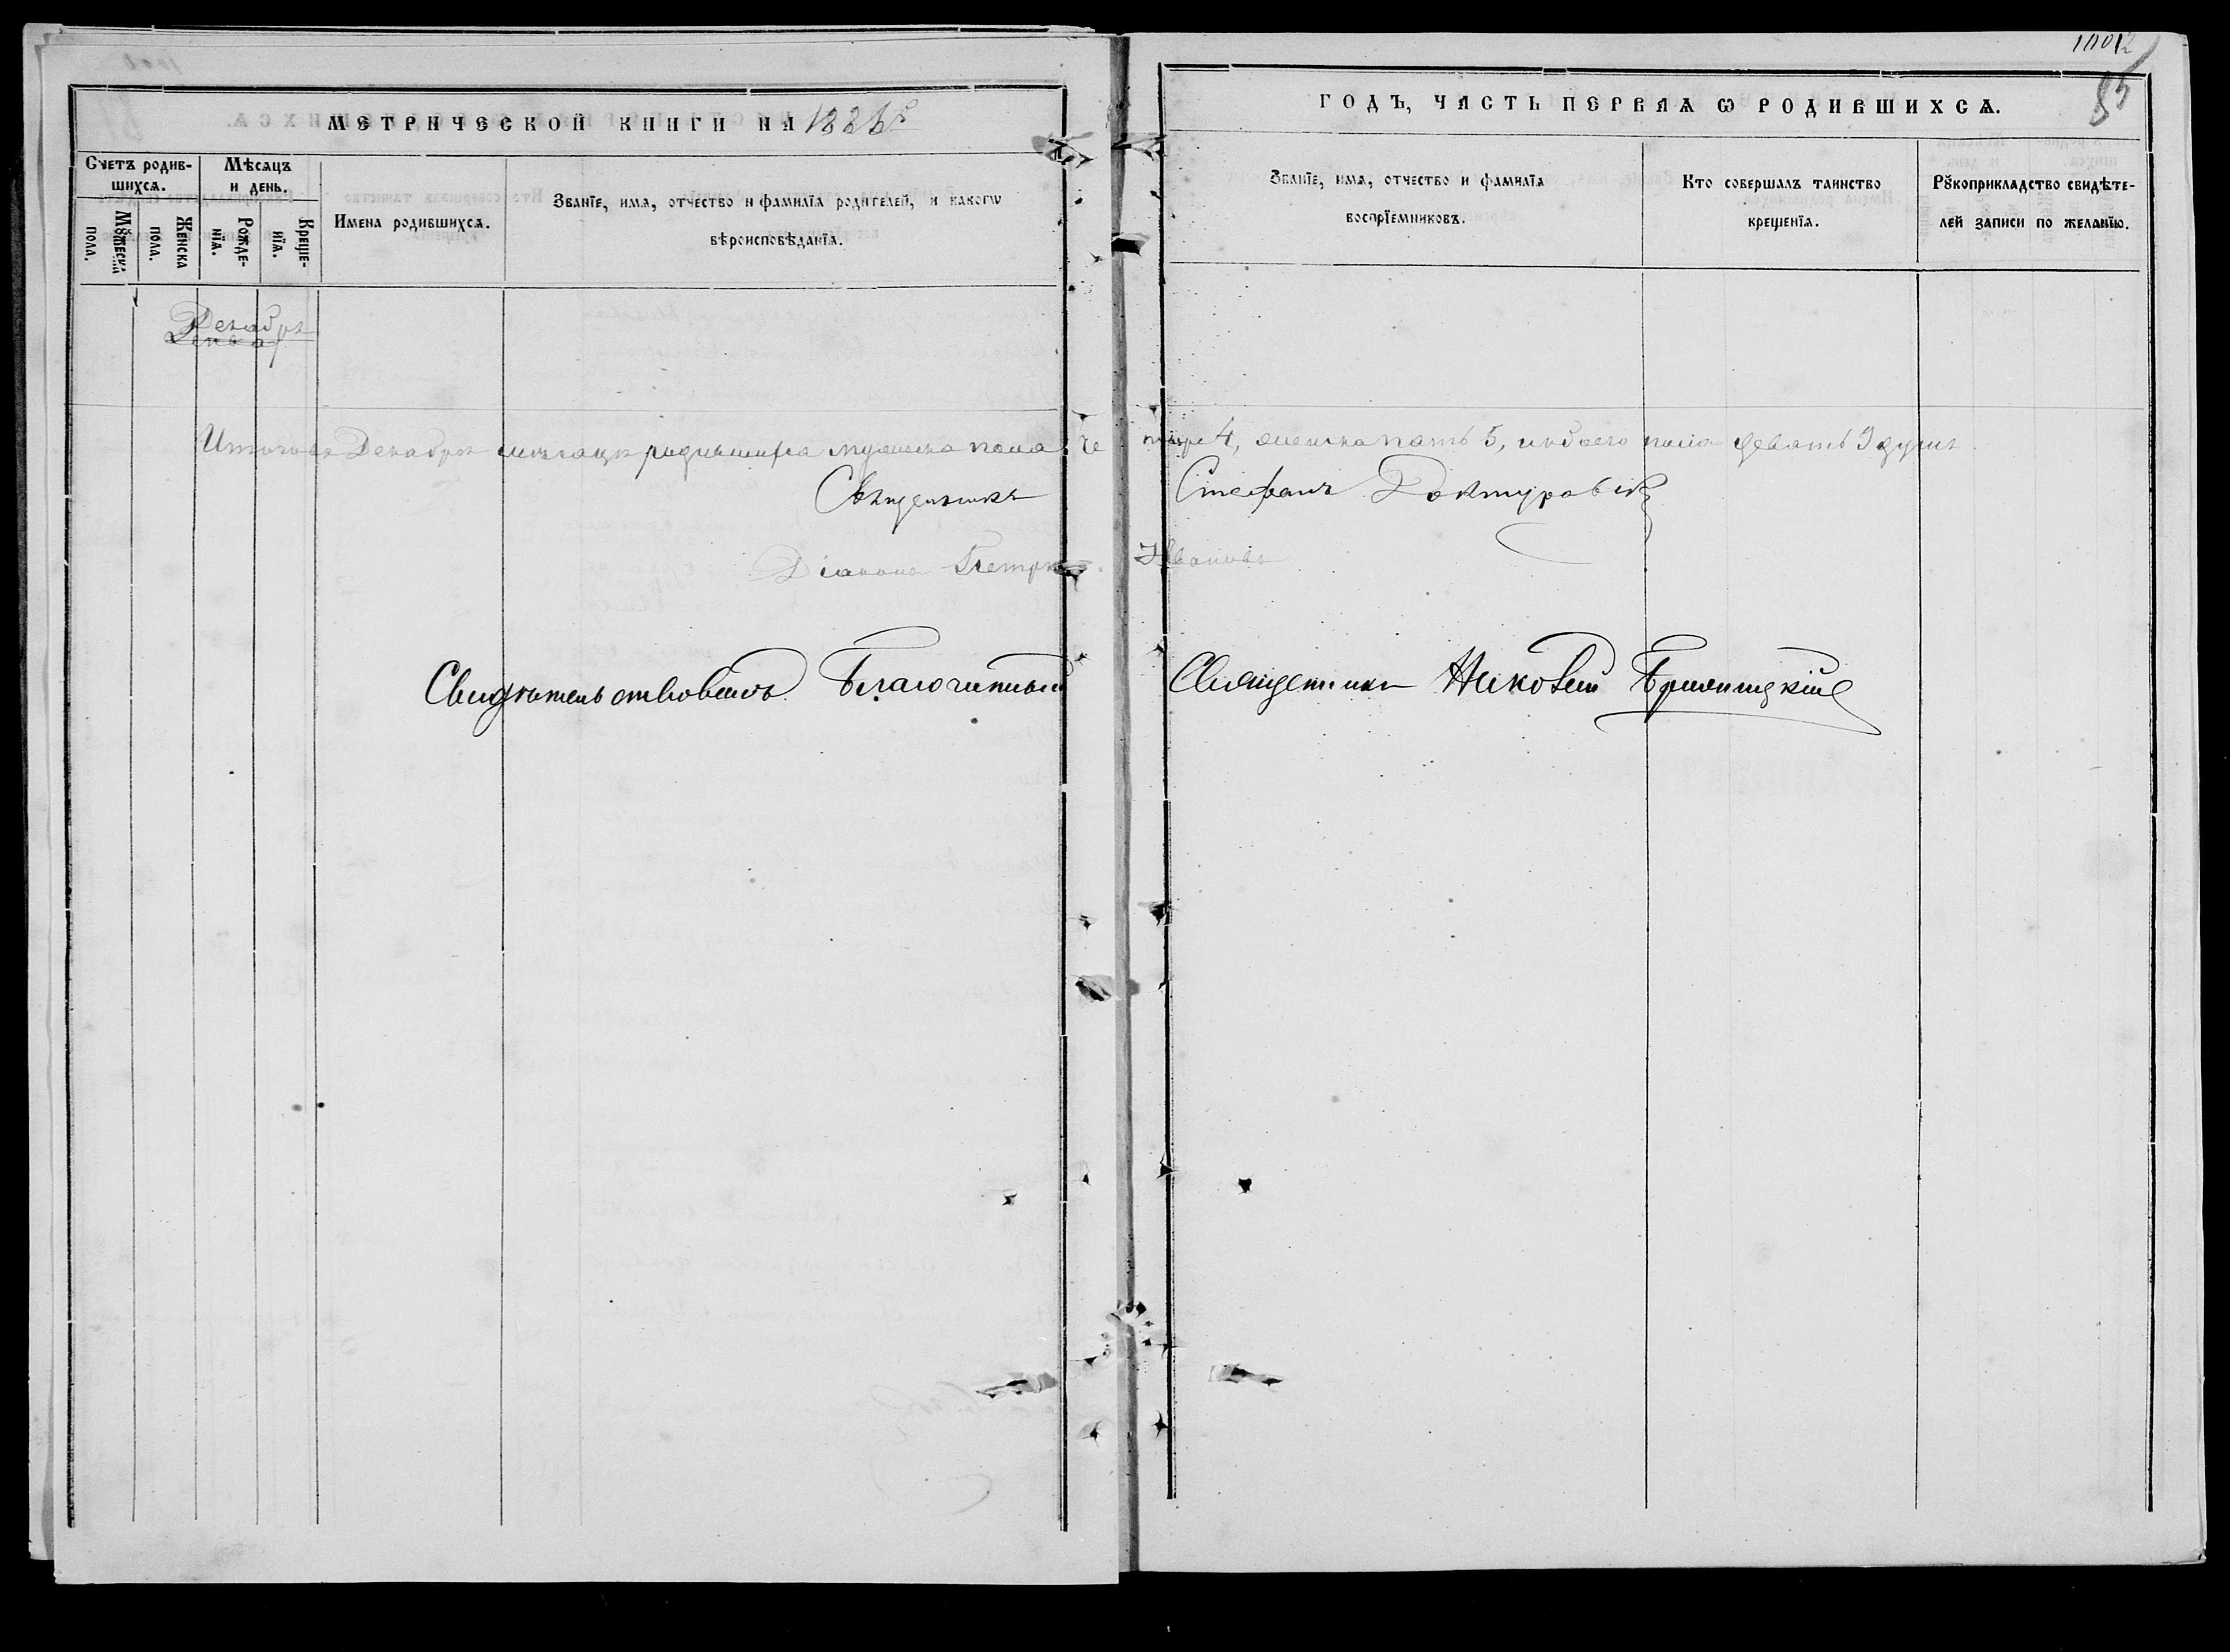 МЕТРИЧЕСКОЙ КНИГИ НА 188
Счетъ родив-
шихсѧ.
Мѣсѧцъ
и день.
Мꙋжеска
пола.
Женска
пола.
Рожде-
нїѧ.
Креще-
нїѧ.
Имена родившихсѧ.
Званїе, имѧ, отчество и фамилїа родителей, и какогѡ
вѣроисповѣданїѧ.
Декабрь
Итого въ Декабрѣ мѣсяцѣ родившихся мужеска пола че
Священникъ
Діаконъ Петръ
Свидѣтельствовалъ Благочинный
1002
85
ГОДЪ, ЧАСТЬ ПЕРВАѦ Ѡ РОДИВШИХСѦ.
Званїе, имѧ, отчество и фамилїа
воспрїемниковъ.
Кто совершалъ таинство
крещенїѧ.
Рꙋкоприкладство свидѣте-
лей записи по желанїю.
тыре 4, женска пять 5, и обоего пола девять 9 душъ
Стефанъ Доктуровскі
Ивановъ
Священникъ